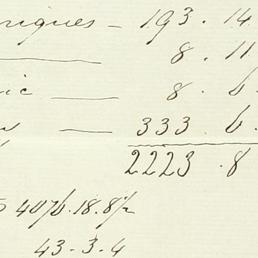 riques - 193 . 14
8 . 11
ic — 8 . 6
s — 333 . 6 .
2223 . 8
4076 . 18 . 8½
43 - 3 - 4